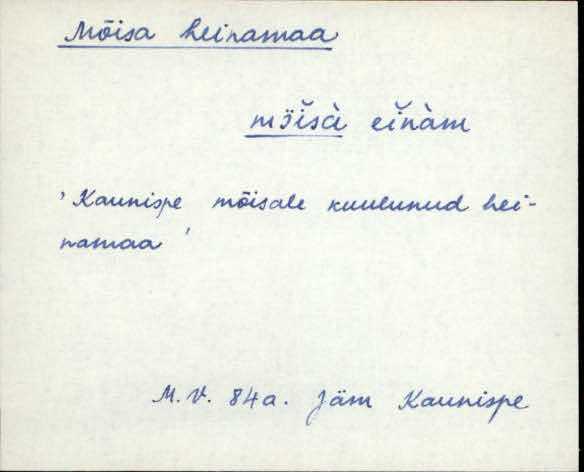 Mõisa heinamaa
mȫi̬sà ei̬nàm
' Kaunispe mõisale kuulunud hei-
namaa '
M.V. 84a. Jäm Kaunispe